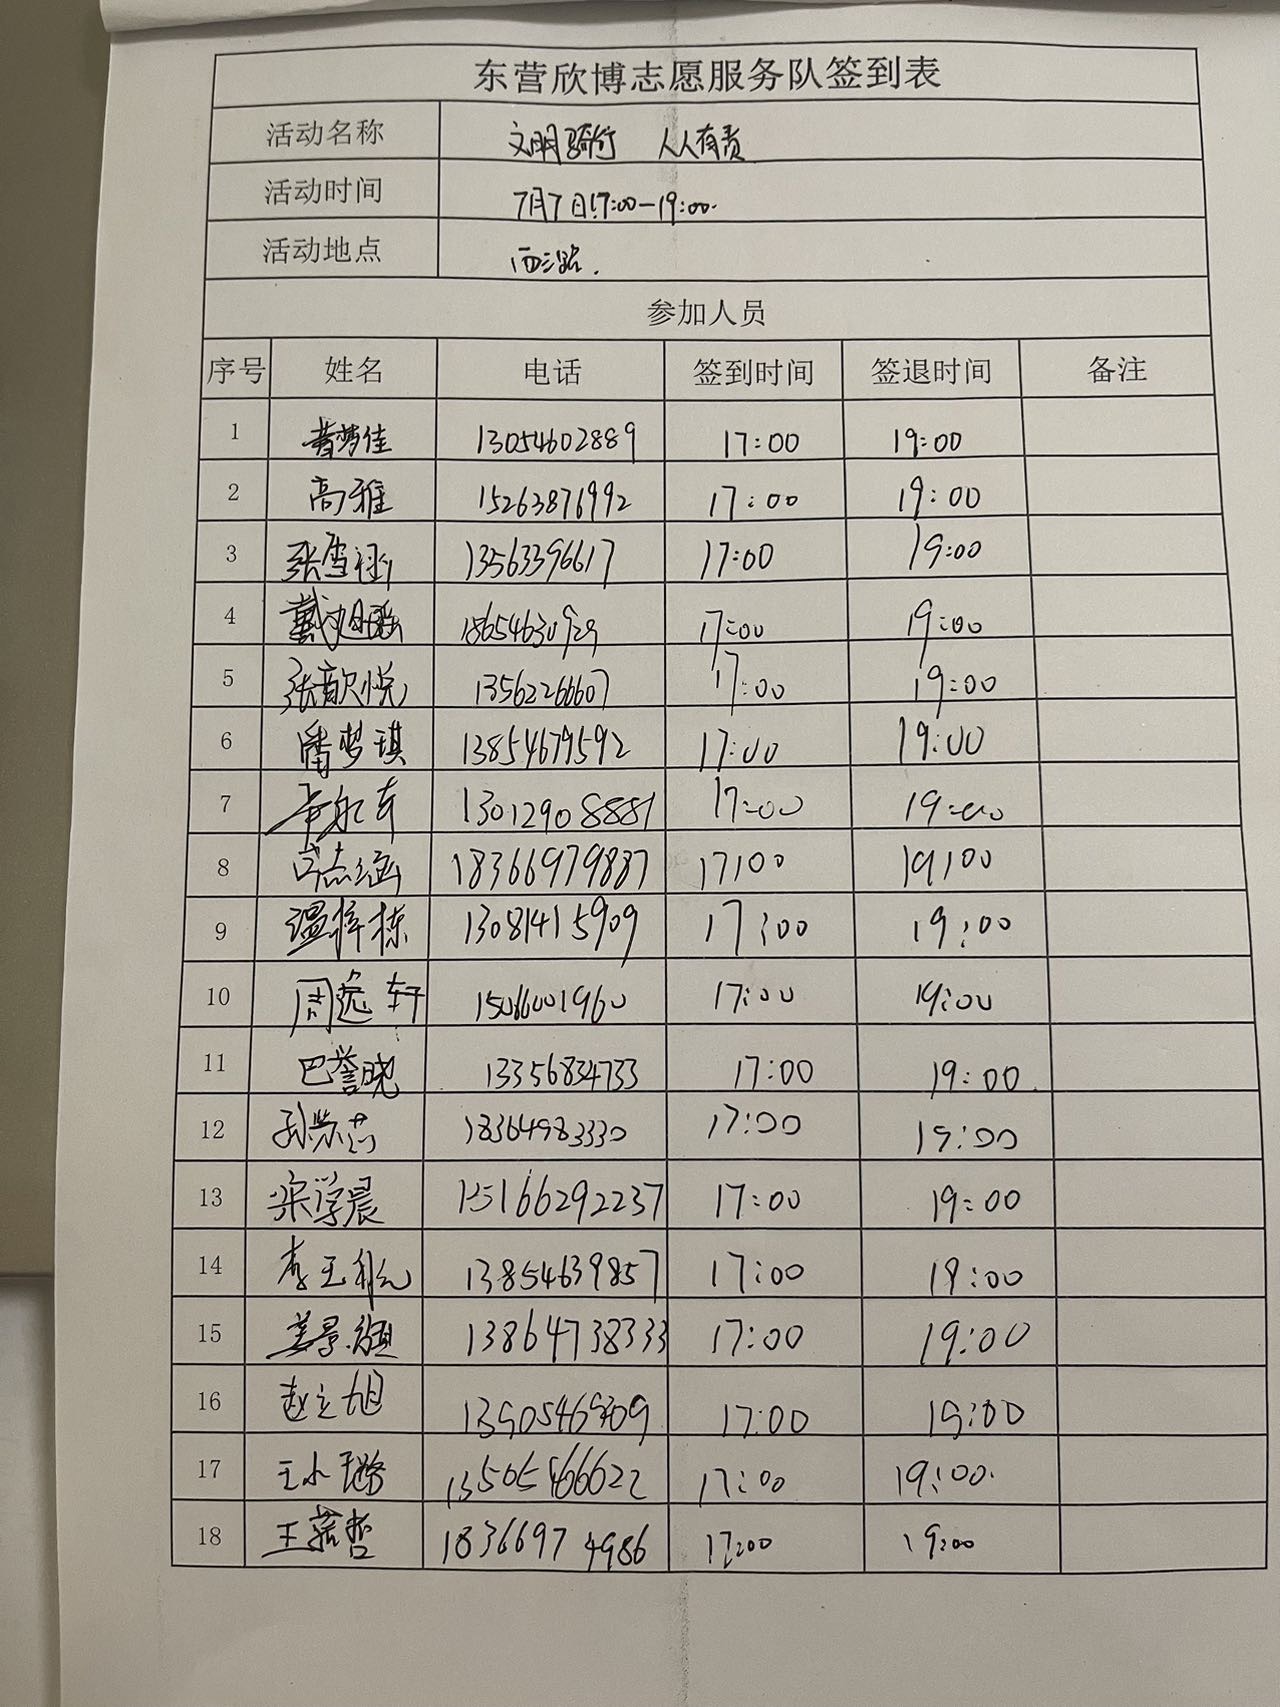 东营欣博志愿服务队签到表
活动名称 文明骑行 人人有责
活动时间 7月7日17:00-19:00.
活动地点 西三路.
参加人员
序号 姓名 电话 签到时间 签退时间 备注
1 黄梦佳 13054602889 17:00 19:00
2 高雅 15263876992 17:00 19:00
3 张雪 13563396617 17:00 19:00
4 戴旭瑶 18654630929 17:00 19:00
5 张歆悦 13562266607 17:00 19:00
6 潘梦琪 13854679592 17:00 19:00
7 13012908881 17:00 19:00
8 18366979887 17:00 19:00
9 温梓栋 13081415909 17:00 19:00
10 周逸轩 15066001960 17:00 19:00
11 巴誉晓 13356834733 17:00 19:00.
12 孙 18364983330 17:00 19:00
13 梁学晨 15166292237 17:00 19:00
14 李王 13854639857 17:00 19:00
15 姜景 13864738333 17:00 19:00
16 赵立旭 17:00 19:00
17 王水璐 13505466622 17:00 19:00.
18 王 哲 18366974986 17:00 19:00